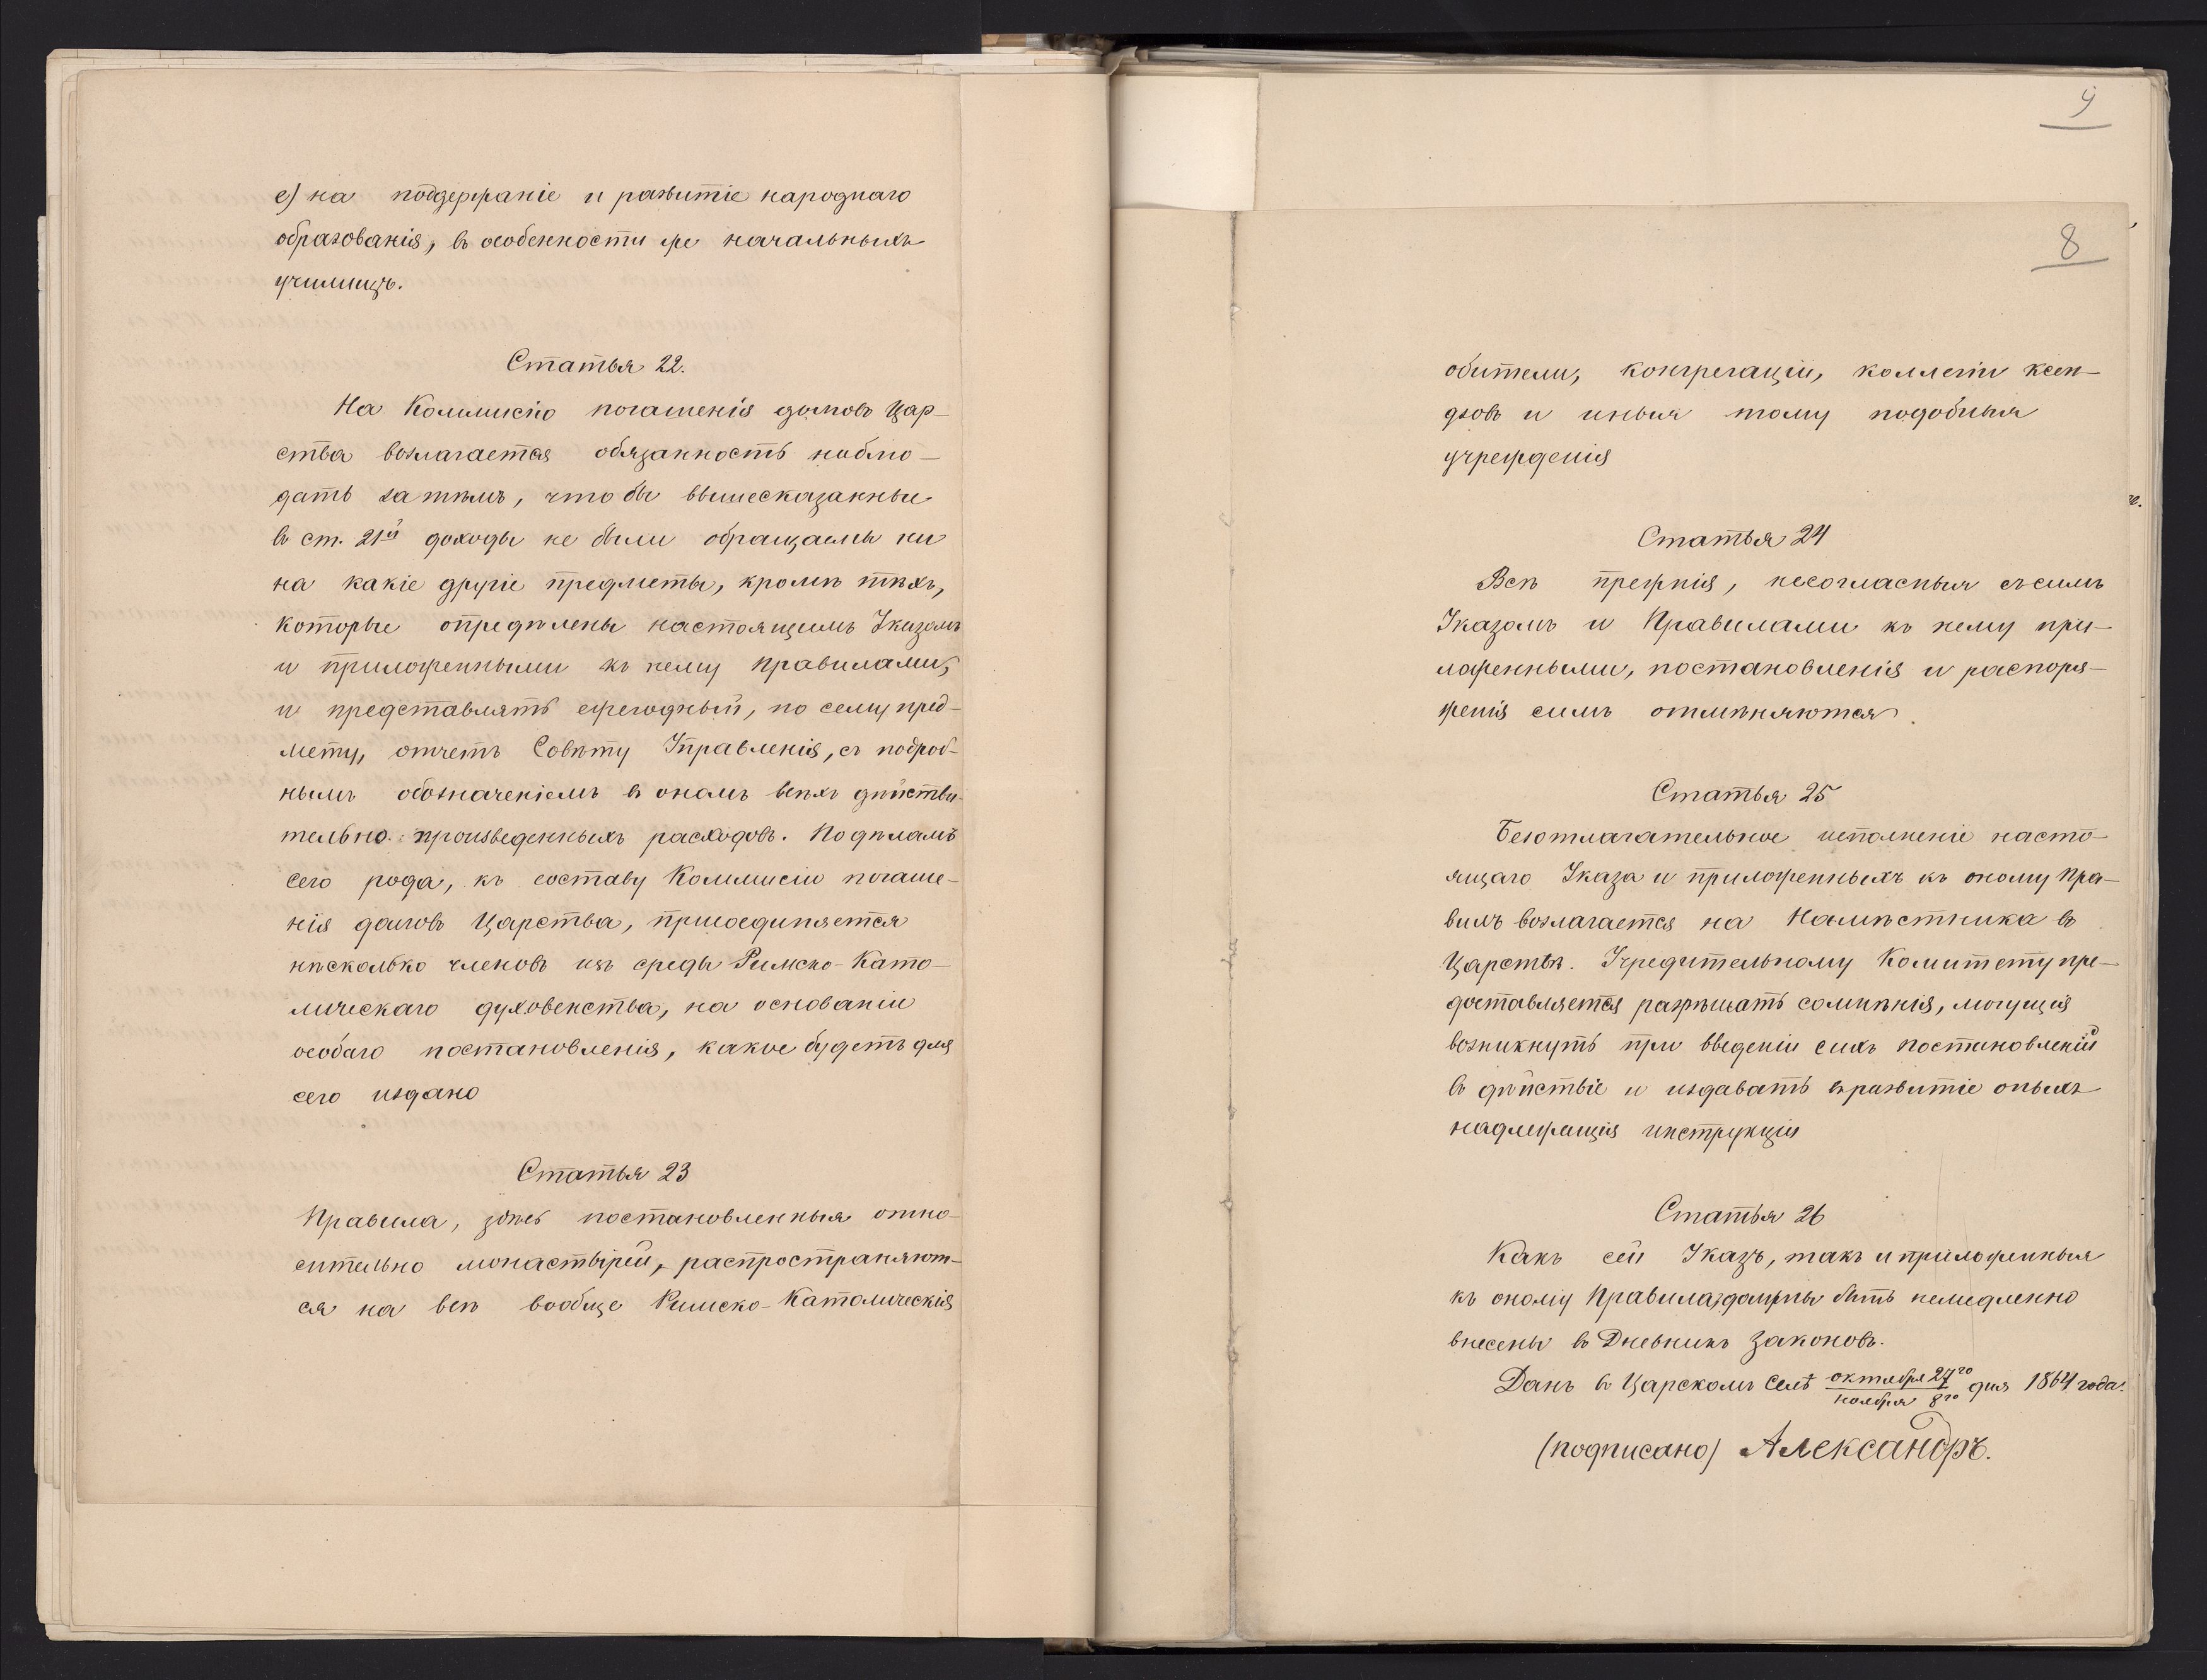 е) на поддержаніе и развитіе народнаго
образованія, въ особенности же начальныхъ
училищъ.
Статья 22.
На Коммисію погашенія долговъ Цар-
ства возлагается обязанность наблю-
дать за тѣмъ, что бы вышесказанные
въ ст. 21й доходы не были обращаемы ни
на какіе другіе предметы, кромѣ тѣхъ,
которые опредѣлены настоящимъ Указомъ
и приложенными къ нему правилами,
и представлять ежегодный, по сему пред-
мету, отчетъ Совѣту Управленія, съ подроб-
нымъ обозначеніемъ въ ономъ всѣхъ дѣйстви-
тельно произведенныхъ расходовъ. По дѣламъ
сего рода, къ составу Коммисіи погаше-
нія долговъ Царства, присоединяется
нѣсколько членовъ изъ среды Римско-Като-
лическаго духовенства, на основаніи
особаго постановленія, какое будетъ для
сего издано
Статья 23
Правила, здѣсь постановленныя отно-
сительно монастырей, распространяют-
ся на всѣ вообще Римско-Католическія
9
8
обители, конгрегаціи, коллегіи ксен-
дзовъ и иныя тому подобныя
учрежденія
Статья 24
Всѣ прежнія, несогласныя съ симъ
Указомъ и Правилами къ нему при-
ложенными, постановленія и распоря-
женія симъ отмѣняются.
Статья 25
Безотлагательное исполненіе насто-
ящаго Указа и приложенныхъ къ оному Пра-
вилъ возлагается на Намѣстника въ
Царствѣ. Учредительному Комитету пре-
доставляется разрѣшать сомнѣнія, могущія
возникнуть при введеніи сихъ постановленій
въ дѣйствіе и издавать въ развитіе оныхъ
надлежащія инструкціи
Статья 26
Какъ сей Указъ, такъ и приложенныя
къ оному Правила, должны быть немедленно
внесены въ Дневникъ Законовъ.
Данъ въ Царскомъ Селѣ октября 27го / ноября 8го дня 1864 года.
(подписано) Александръ.